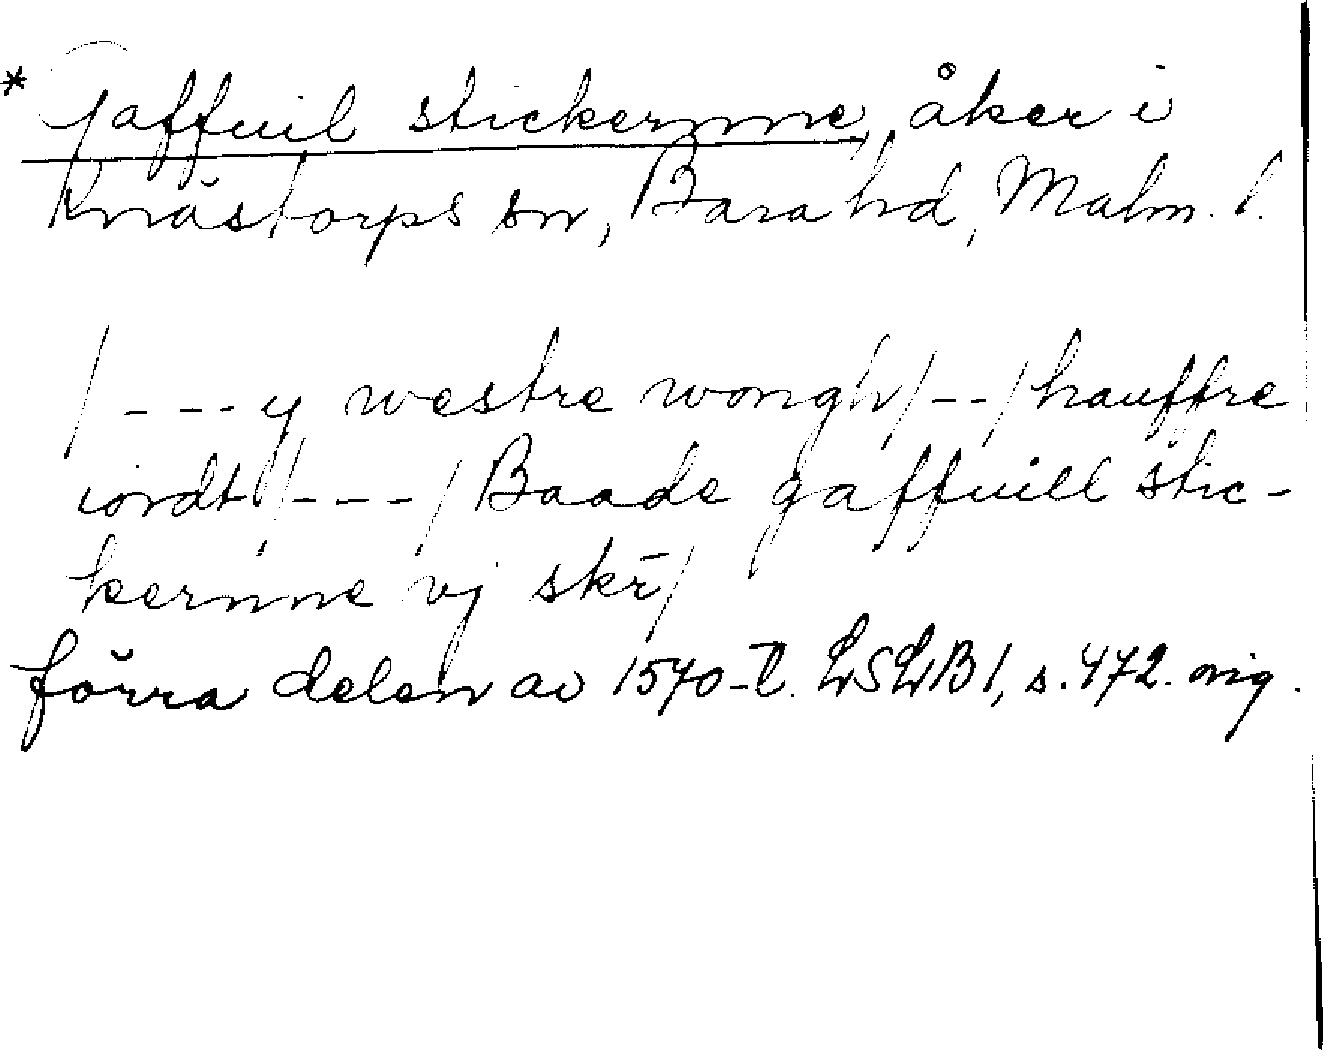 * Gaffuil stickernne, åker i
Knästorps sn, Bara hd, Malm. l.
/---y westre wongh/--/hauffre
iordt/---/Baade gaffuill stic-
kernne vj skr̄/
förra delen av 1570-t. LSLB1, s. 472. orig.